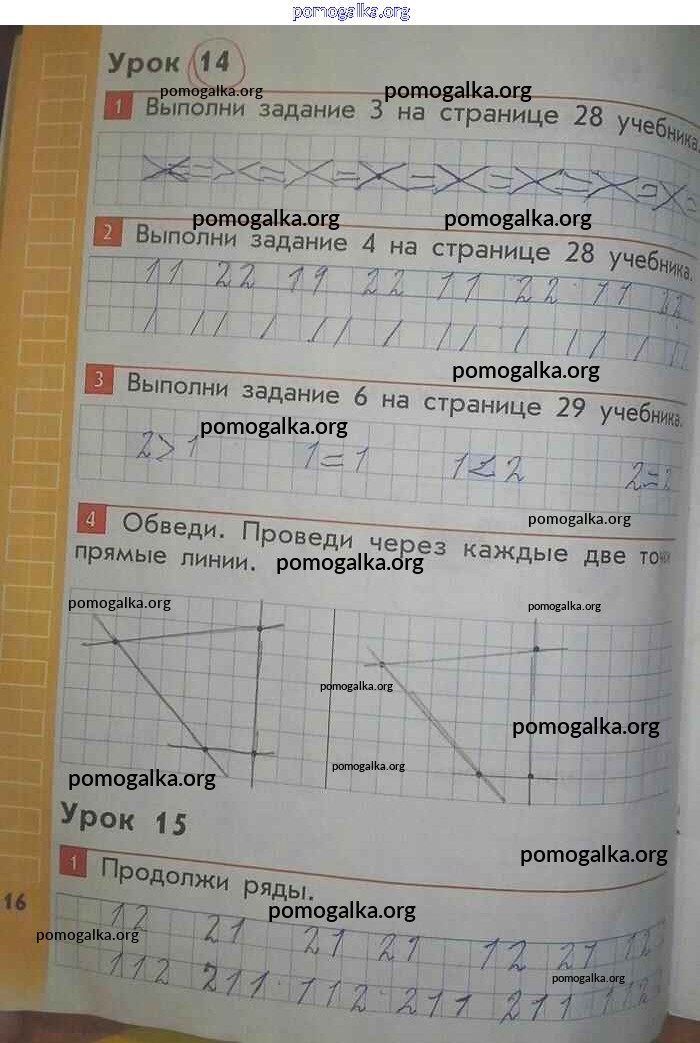 pomogalka.org
Урок 14
pomogalka.org pomogalka.org
1 Выполни задание 3 на странице 28 учебника.
pomogalka.org pomogalka.org
2 Выполни задание 4 на странице 28 учебника.
11 22 11 22 11 22 11 22
pomogalka.org
3 Выполни задание 6 на странице 29 учебника.
pomogalka.org
2>1 1=1 1<2 2=2
pomogalka.org
4 Обведи. Проведи через каждые две
прямые линии. pomogalka.org
pomogalka.org pomogalka.org
pomogalka.org
pomogalka.org
pomogalka.org pomogalka.org
Урок 15
pomogalka.org
1 Продолжи ряды.
16
pomogalka.org
12 21 21 21 12 21 12
pomogalka.org
pomogalka.org
112 211 112 211 211 112